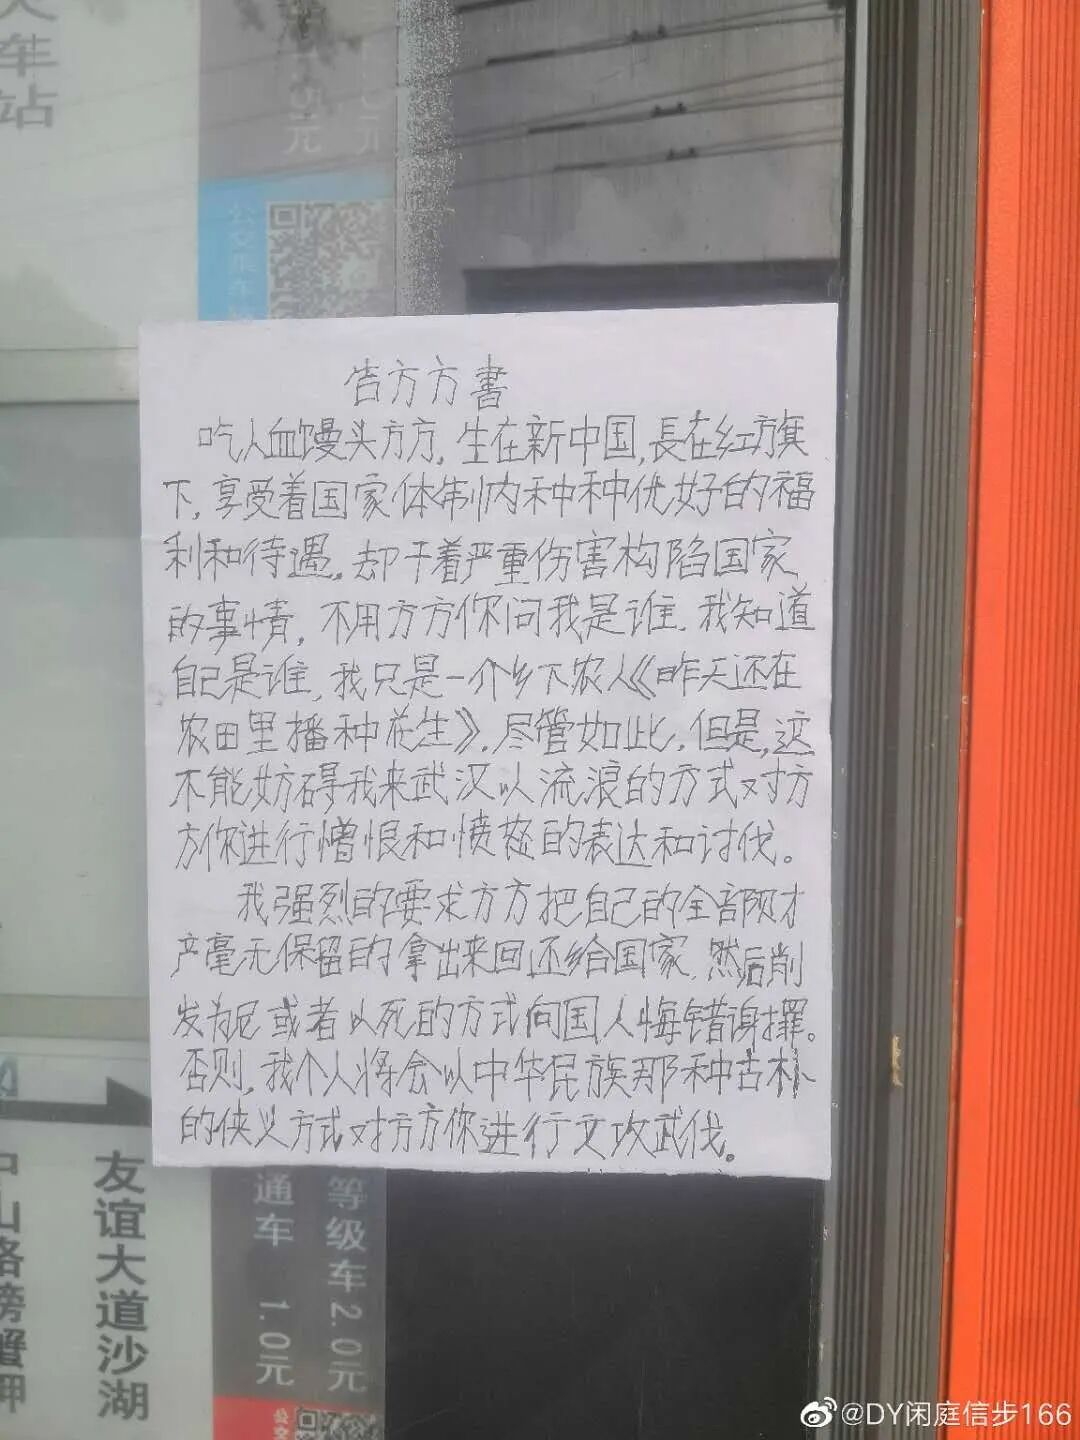 车站
元
元
公交集
告方方書
吃人血馒头方方，生在新中国，長在红旗
下，享受着国家体制内种种优好的福
利和待遇。却干着严重伤害构陷国家
的事情，不用方方你问我是谁．我知道
自己是谁，我只是一个乡下农人《昨天还在
农田里播种花生》．尽管如此，但是，这
不能妨碍我来武汉以流浪的方式对方
方你进行憎恨和愤怒的表达和讨伐。
我强烈的要求方方把自己的全部财才
产毫无保留的拿出来回还给国家，然后削
发为尼或者以死的方式向国人悔错谢罪。
否则，我个人将会以中华民族那种古朴
的侠义方式对方方你进行文攻武伐。
中山路螃蟹岬
友谊大道沙湖
通车 1.0元
等级车2.0元
公交
@DY闲庭信步166